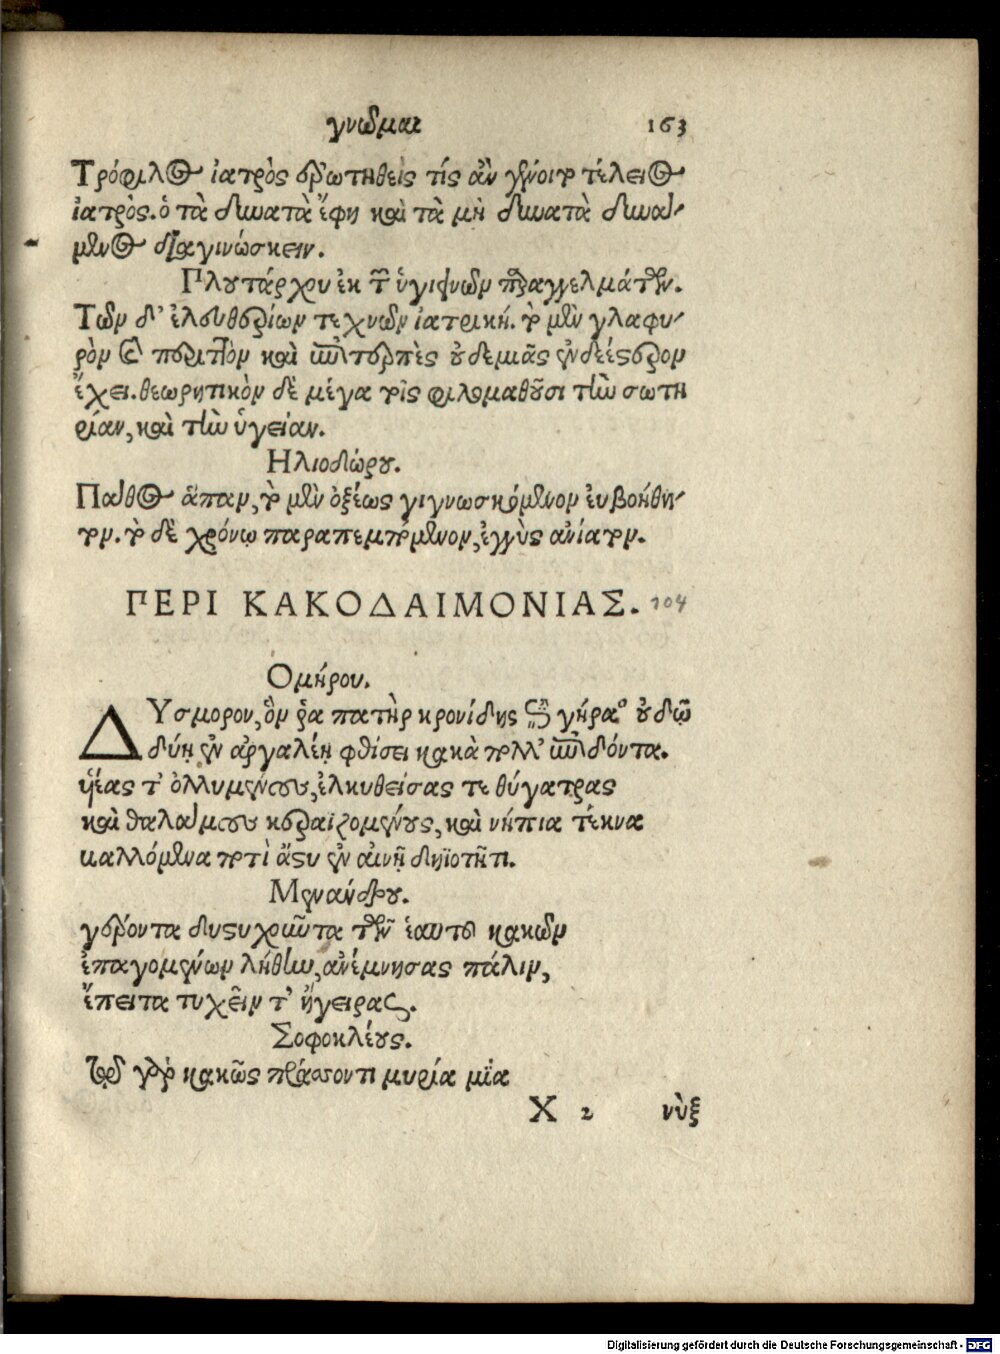 γνῶμαι 163
Τρόφιλος ἰατρὸς ἐρωτηθεὶς τίς ἂν γένοιτο τέλειος
ἰατρὸς. ὁ τὰ δυνατὰ ἔφη καὶ τὰ μὴ δυνατὰ δυνά-
μενος διαγινώσκειν.
Πλουτάρχου ἐκ τῶν ὑγιεινῶν παραγγελμάτων.
Τῶν δ' ἐλευθερίων τεχνῶν ἰατρική. τὸ μὲν γλαφυ-
ρὸν καὶ περιττὸν καὶ ἐπιτερπὲς οὐδεμιᾶς ἐνδεέστερον
ἔχει. θεωρητικὸν δὲ μέγα τοῖς φιλομαθοῦσι τὴν σωτη
ρίαν, καὶ τὴν ὑγείαν.
Ηλιοδώρου.
Πάθος ἅπαν, τὸ μὲν ὀξέως γιγνωσκόμενον εὐβοήθη-
τον. τὸ δὲ χρόνῳ παραπεμπόμενον, ἐγγὺς ἀνίατον.
ΠΕΡΙ ΚΑΚΟΔΑΙΜΟΝΙΑΣ. 104
Ομήρου.
ΔΥσμορον, ὃν ῥα πατὴρ κρονίδης ἐπὶ γήραος οὐδῷ
δύῃ ἐν ἀργαλέῃ φθίσει κακὰ πολλ' ἐπιδόντα.
ἡέας τ' ὀλλυμένους, ἑλκυθείσας τε θύγατρας
καὶ θαλάμους κεραϊζομένους, καὶ νήπια τέκνα
βαλλόμενα ποτὶ ἄστυ ἐν αἰνῇ δηϊοτῆτι.
Μενάνδρου.
γέροντα δυστυχοῦντα τῶν ἑαυτοῦ κακῶν
ἐπαγομένων λήθην, ἀνέμνησας πάλιν,
ἔπειτα τυχεῖν τ' ἤγειρας.
Σοφοκλέους.
Τῷ γὰρ κακῶς πράσσοντι μυρία μία
Χ 2 νὺξ
Digitalisierung gefördert durch die Deutsche Forschungsgemeinschaft - DFG